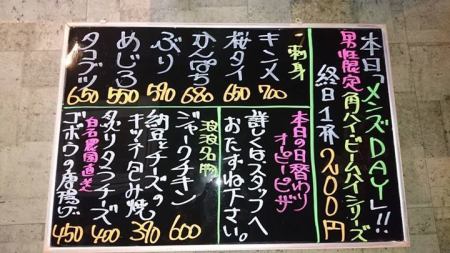 本日「メンズDAY」!!
男性限定
角ハイ・ビームハイシリーズ
終日1杯200円
刺身
キンメ 700
桜タイ 650
かんぱち 680
ぶり 590
めじろ 550
タコブツ 650
本日の日替わり
オーピーピザ
詳しくはスタッフへ
おたずね下さい。
波波名物
ジャークチキン 600
納豆とチーズの
キッチ包み焼 390
炙りタコチーズ 400
白石農園直送
ゴボウの唐揚げ 450